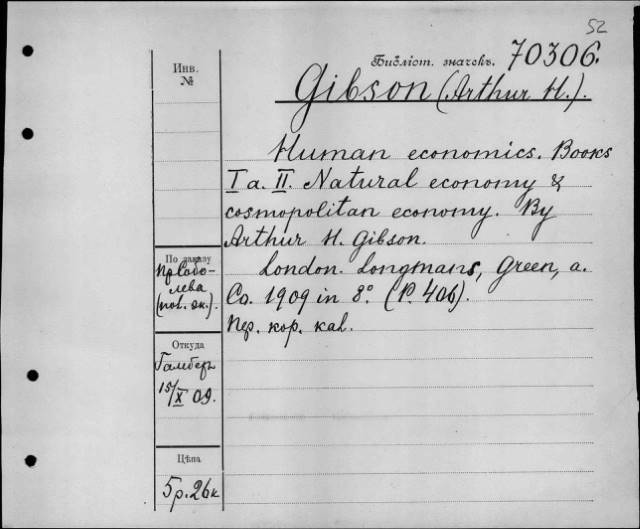 52
Библіот. значекъ. 70306.
Инв.
№
Gibson (Arthur H.).
Human economics. Books
I a. II. Natural economy &
cosmopolitan economy. By
Arthur H. Gibson.
London. Longmans, Green, a.
Co. 1909 in 8º. (P. 406).
Пер. кор. kal.
По заказу
Пр Собо-
лева
(pol. эк.).
Откуда
Гамберъ
15/X 09.
Цѣна
5 р. 26 к